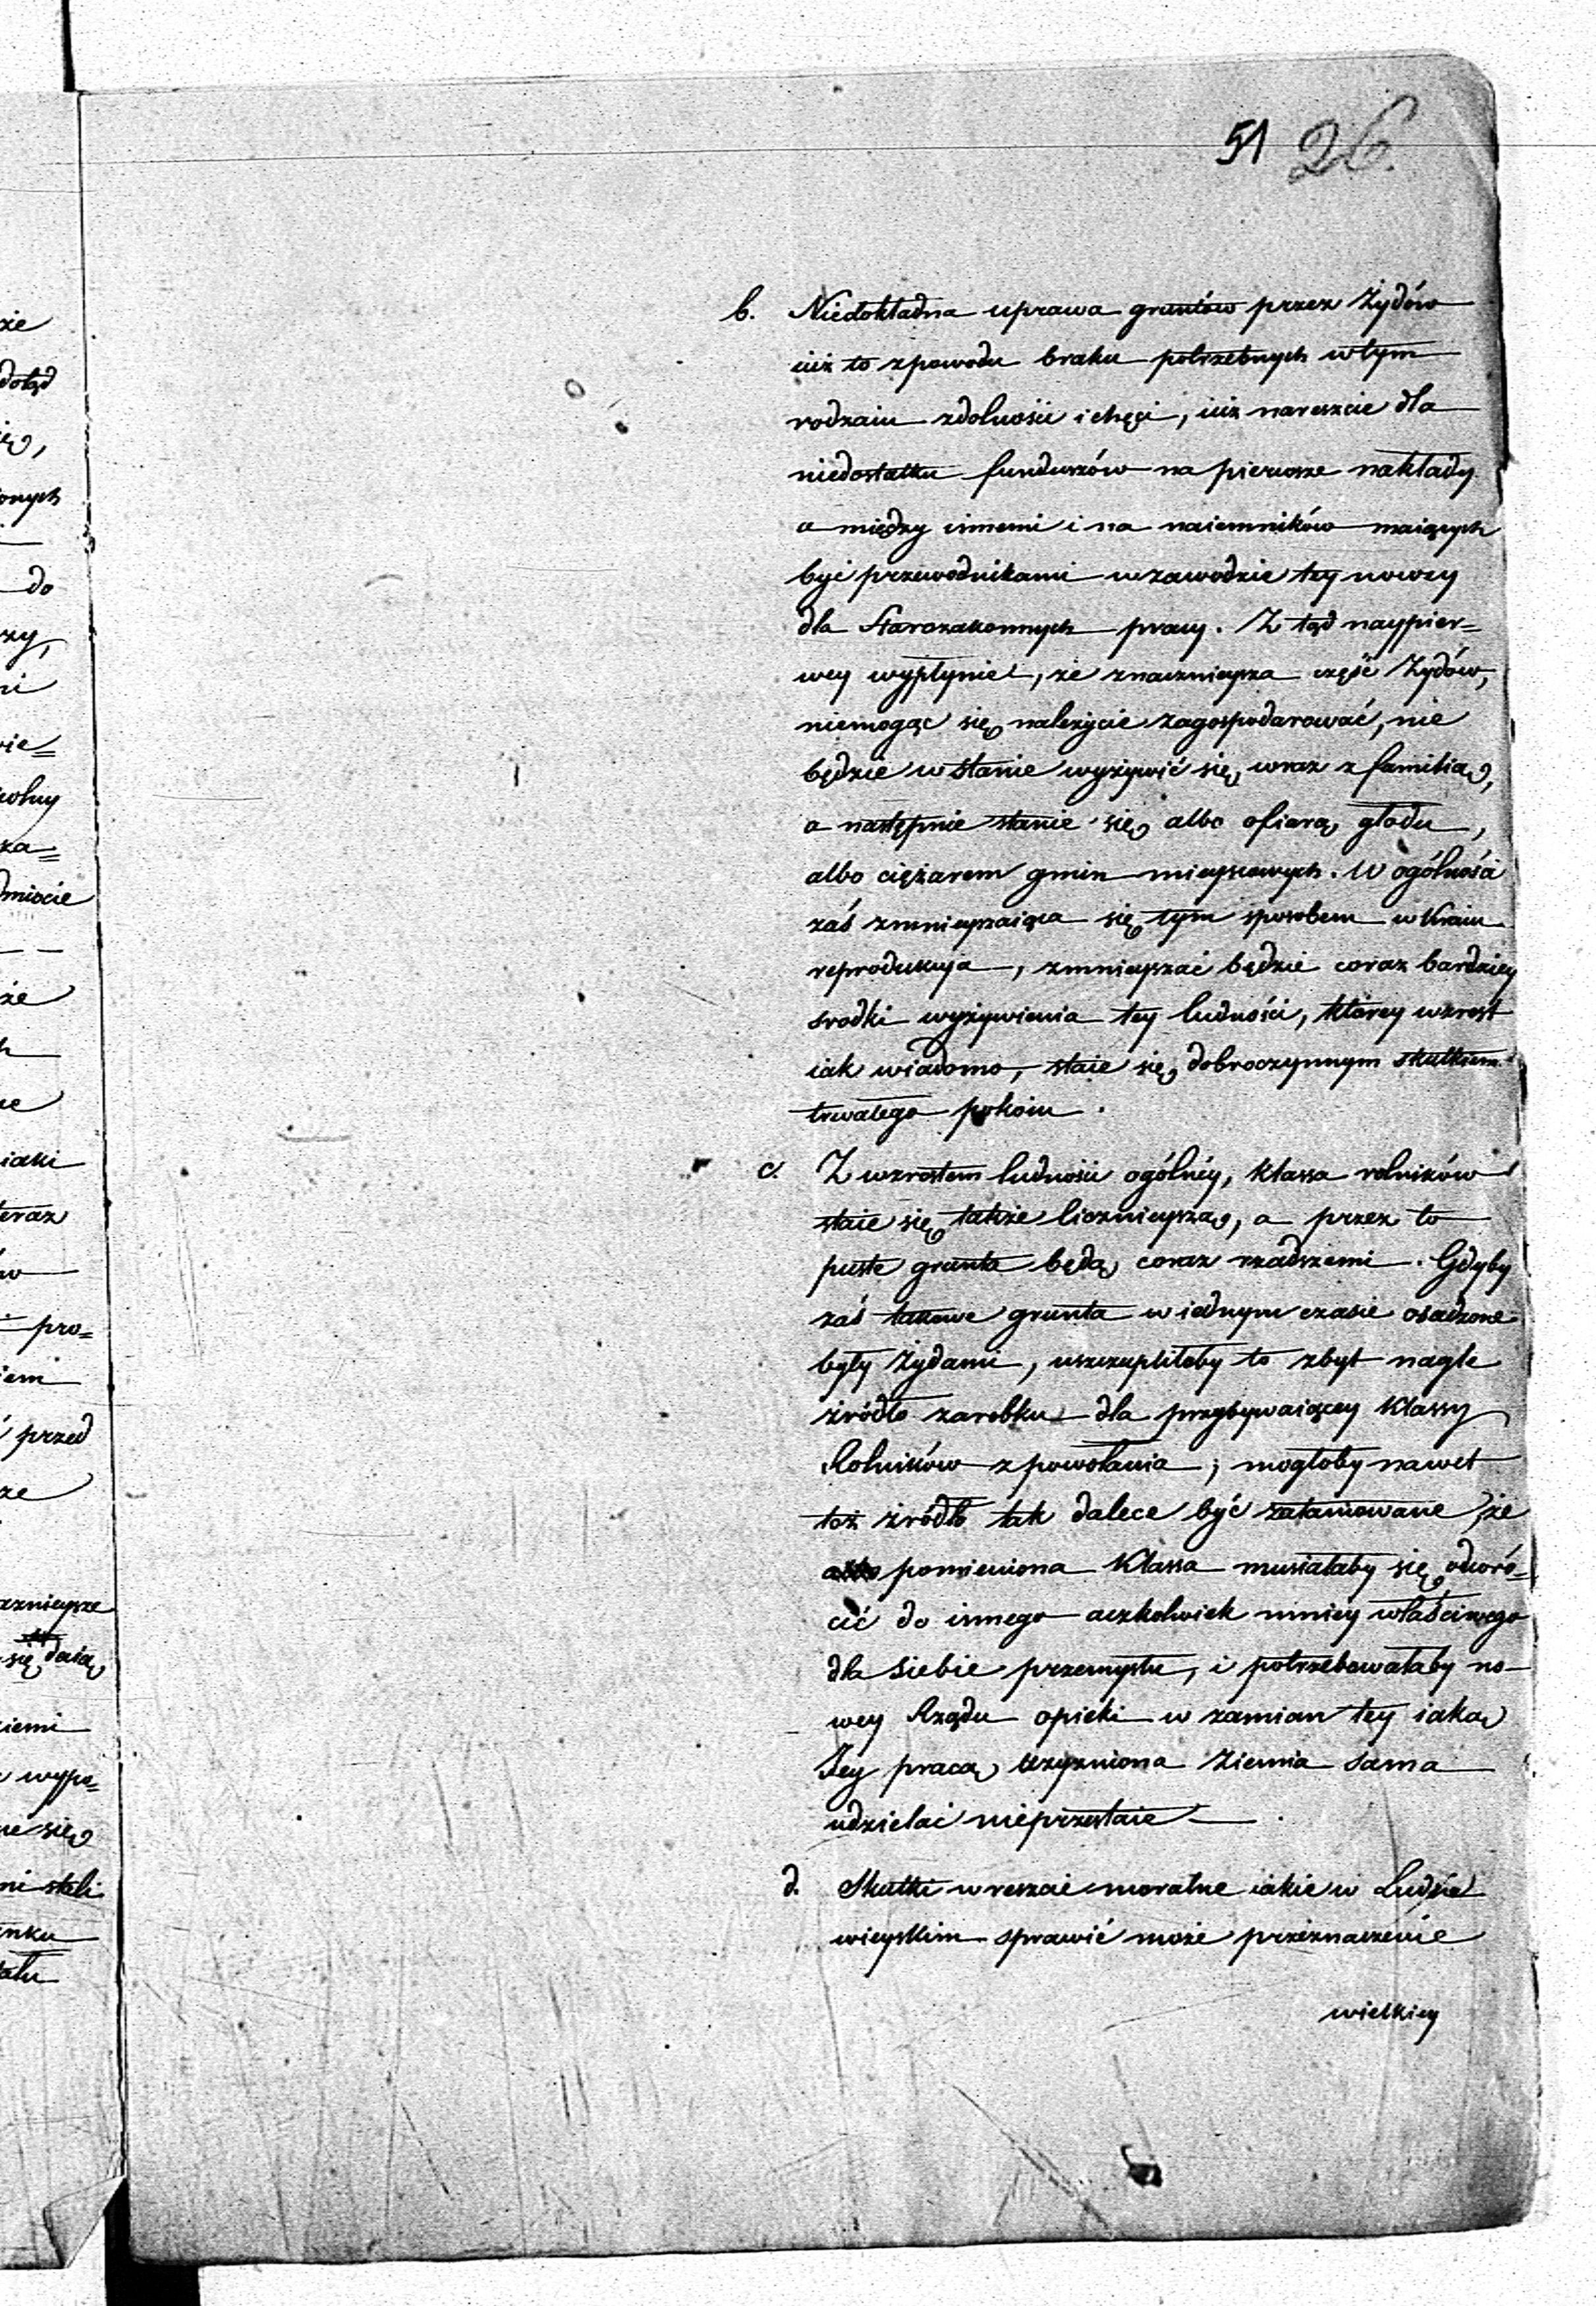 51 26.
b. Niedokładna uprawa gruntów przez Żydów
iuż to zpowodu braku potrzebnych wtym
rodzaiu zdolności i chęci, iuż nareszcie dla
niedostatku funduszów na pierwsze nakłady
a między innemi i na naiemników maiących
być przewodnikami wzawodzie tey nowey
dla Starozakonnych pracy. Z tąd naypier=
wey wypłynie, że znacznieysza część Żydów,
niemogąc się należycie zagospodarować, nie
będzie wstanie wyżywić się wraz z familią,
a następnie stanie się albo ofiarą głodu,
albo ciężarem gmin mieyscowych. W ogólności
zaś zmnieyszaiąca się tym sposobem w Kraiu
reprodukcja, zmnieyszać będzie coraz bardziey
srodki wyżywienia tey ludności, którey wzrost
iak wiadomo, staie się dobroczynnym skutkiem
trwałego pokoiu.
c. Z wzrostem ludności ogólnéy, klassa rolników
staie się także licznieyszą, a przez to
puste grunta będą coraz rzadszemi. Gdyby
zaś takowe grunta w iednym czasie osadzone
były Żydami, uszczupliłoby to zbyt nagle
źródło zarobku dla przybywaiącey Klassy
Rolników zpowołania; mogłoby nawet
toż źródło tak dalece być zatamowane, że
pomieniona Klassa musiałaby się odwró=
cić do innego aczkolwiek mniey właściwego
dla siebie przemysłu, i potrzebowałaby no-
wey Rządu opieki w zamian tey iaką
Jey pracą użyzniona ziemia sama
udzielać nieprzestaie.
d. Skutki wreszcie moralne iakie w Ludzie
wieyskim sprawić może przeznaczenie
wielkiey